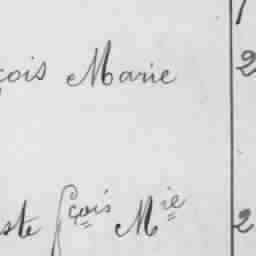 çois Marie 2
ste fçois Mie 2